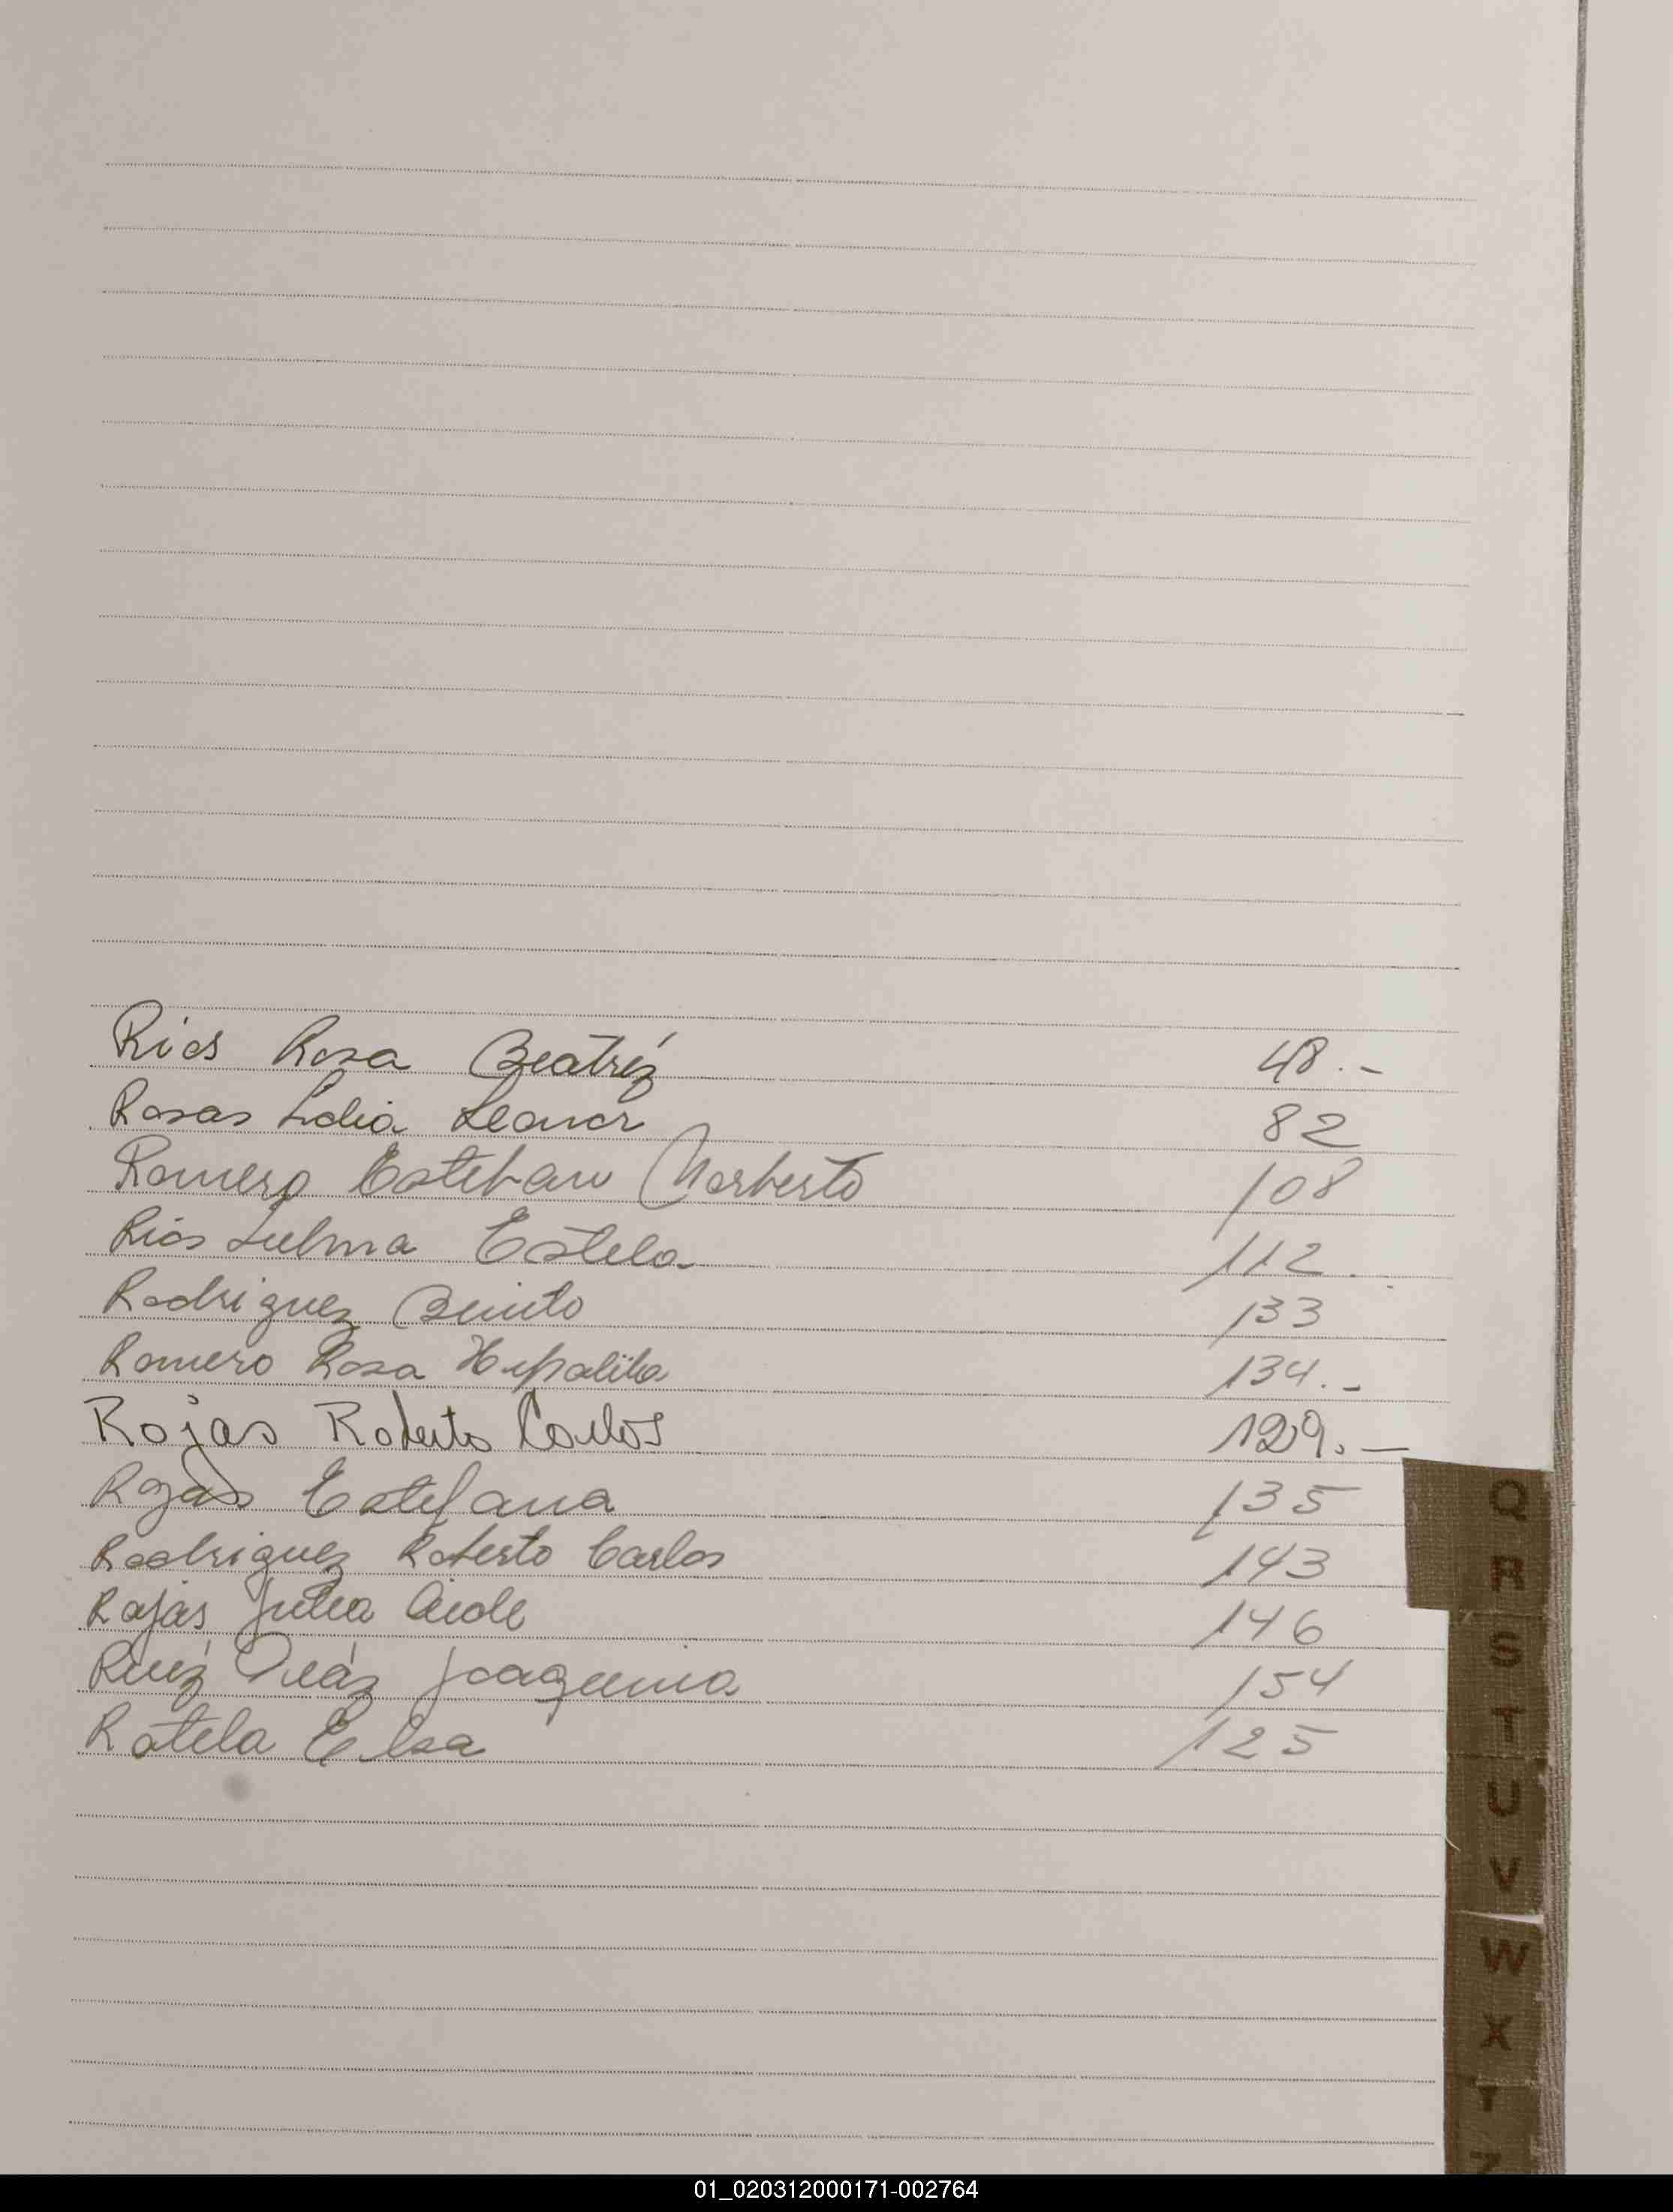 Rios Rosa Beatríz 48.-
Rosas Lidia Leonor 82
Romero Esteban Norberto 108
Rios Zulma Estela 112.
Rodriguez Benito 133
Romero Rosa Hipolita 134.-
Rojas Roberto Carlos 129.-
Rojas Estefana 135
Rodriguez Roberto Carlos 143
Rojas Julia Aide 146
Ruíz Diáz Joaquina 154
Rotela Elsa 125
Q
R
S
T
U
V
W
X
Y
Z
01_020312000171-002764